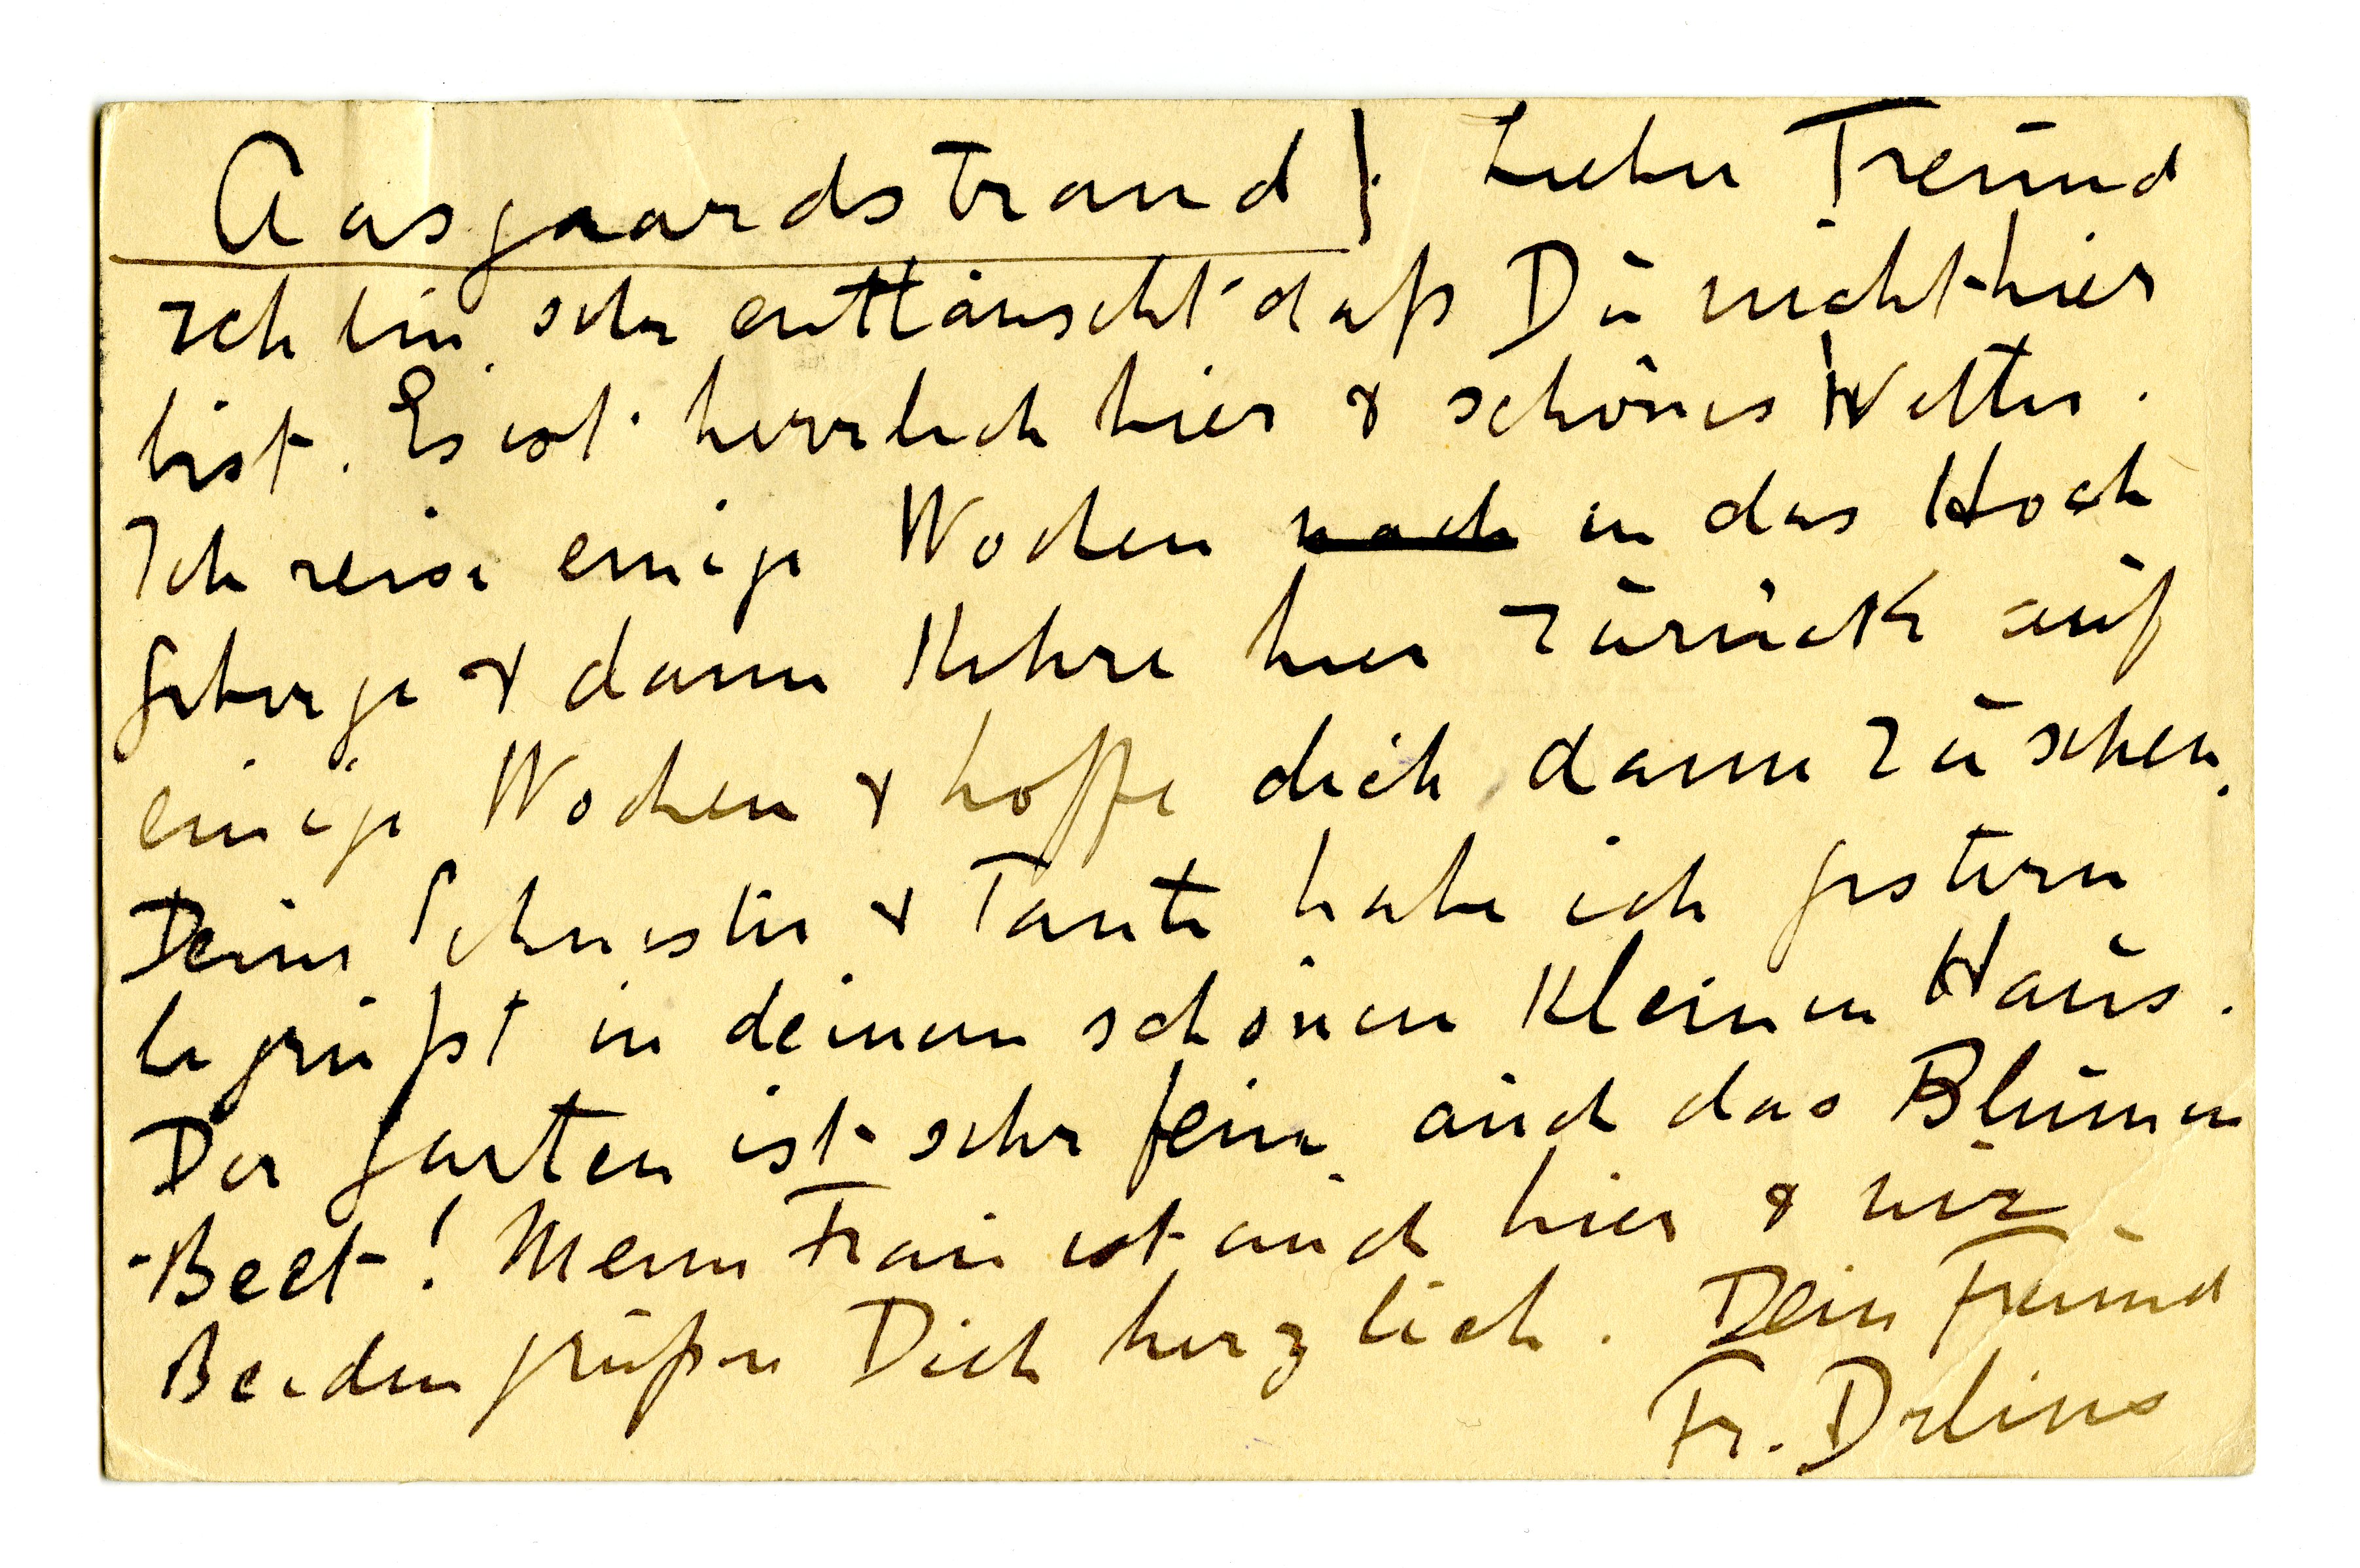 Aasgaardstrand}. Lieber Freund
Ich bin sehr enttäuscht daß Du nicht hier
bist. Es ist herrlich hier & schönes Wetter.
Ich reise einige Wochen nach in das Hoch
gebirge & dann kehre hier zurück auf
einige Wochen & hoffe dich dann zu sehen.
Deine Schwester & Tante habe ich gestern
begrüßt in deinem schönen kleinen Haus.
Der Garten ist sehr fein auch das Blumen
-Beet! Meine Frau ist auch hier & wir
Beiden grüßen Dich herzlich. Dein Freund
Fr. Delius